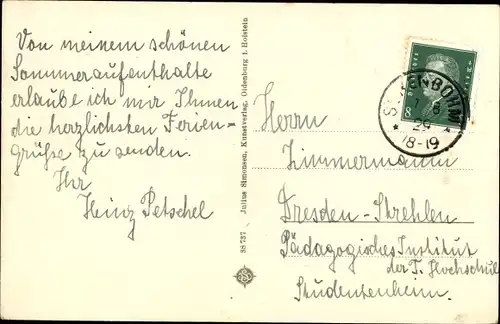 Von meinem schönen
Sommeraufenthalte
erlaube ich mir Ihnen
die herzlichsten Ferien-
grüße zu senden.
Ihr
Heinz Petschel
38 737 Julius Simonsen, Kunstverlag, Oldenburg i. Holstein
8
29
18-19
Herrn
Zimmermann
Dresden-Strehlen
Pädagogisches Institut
der T. Hochschule
Studentenheim.